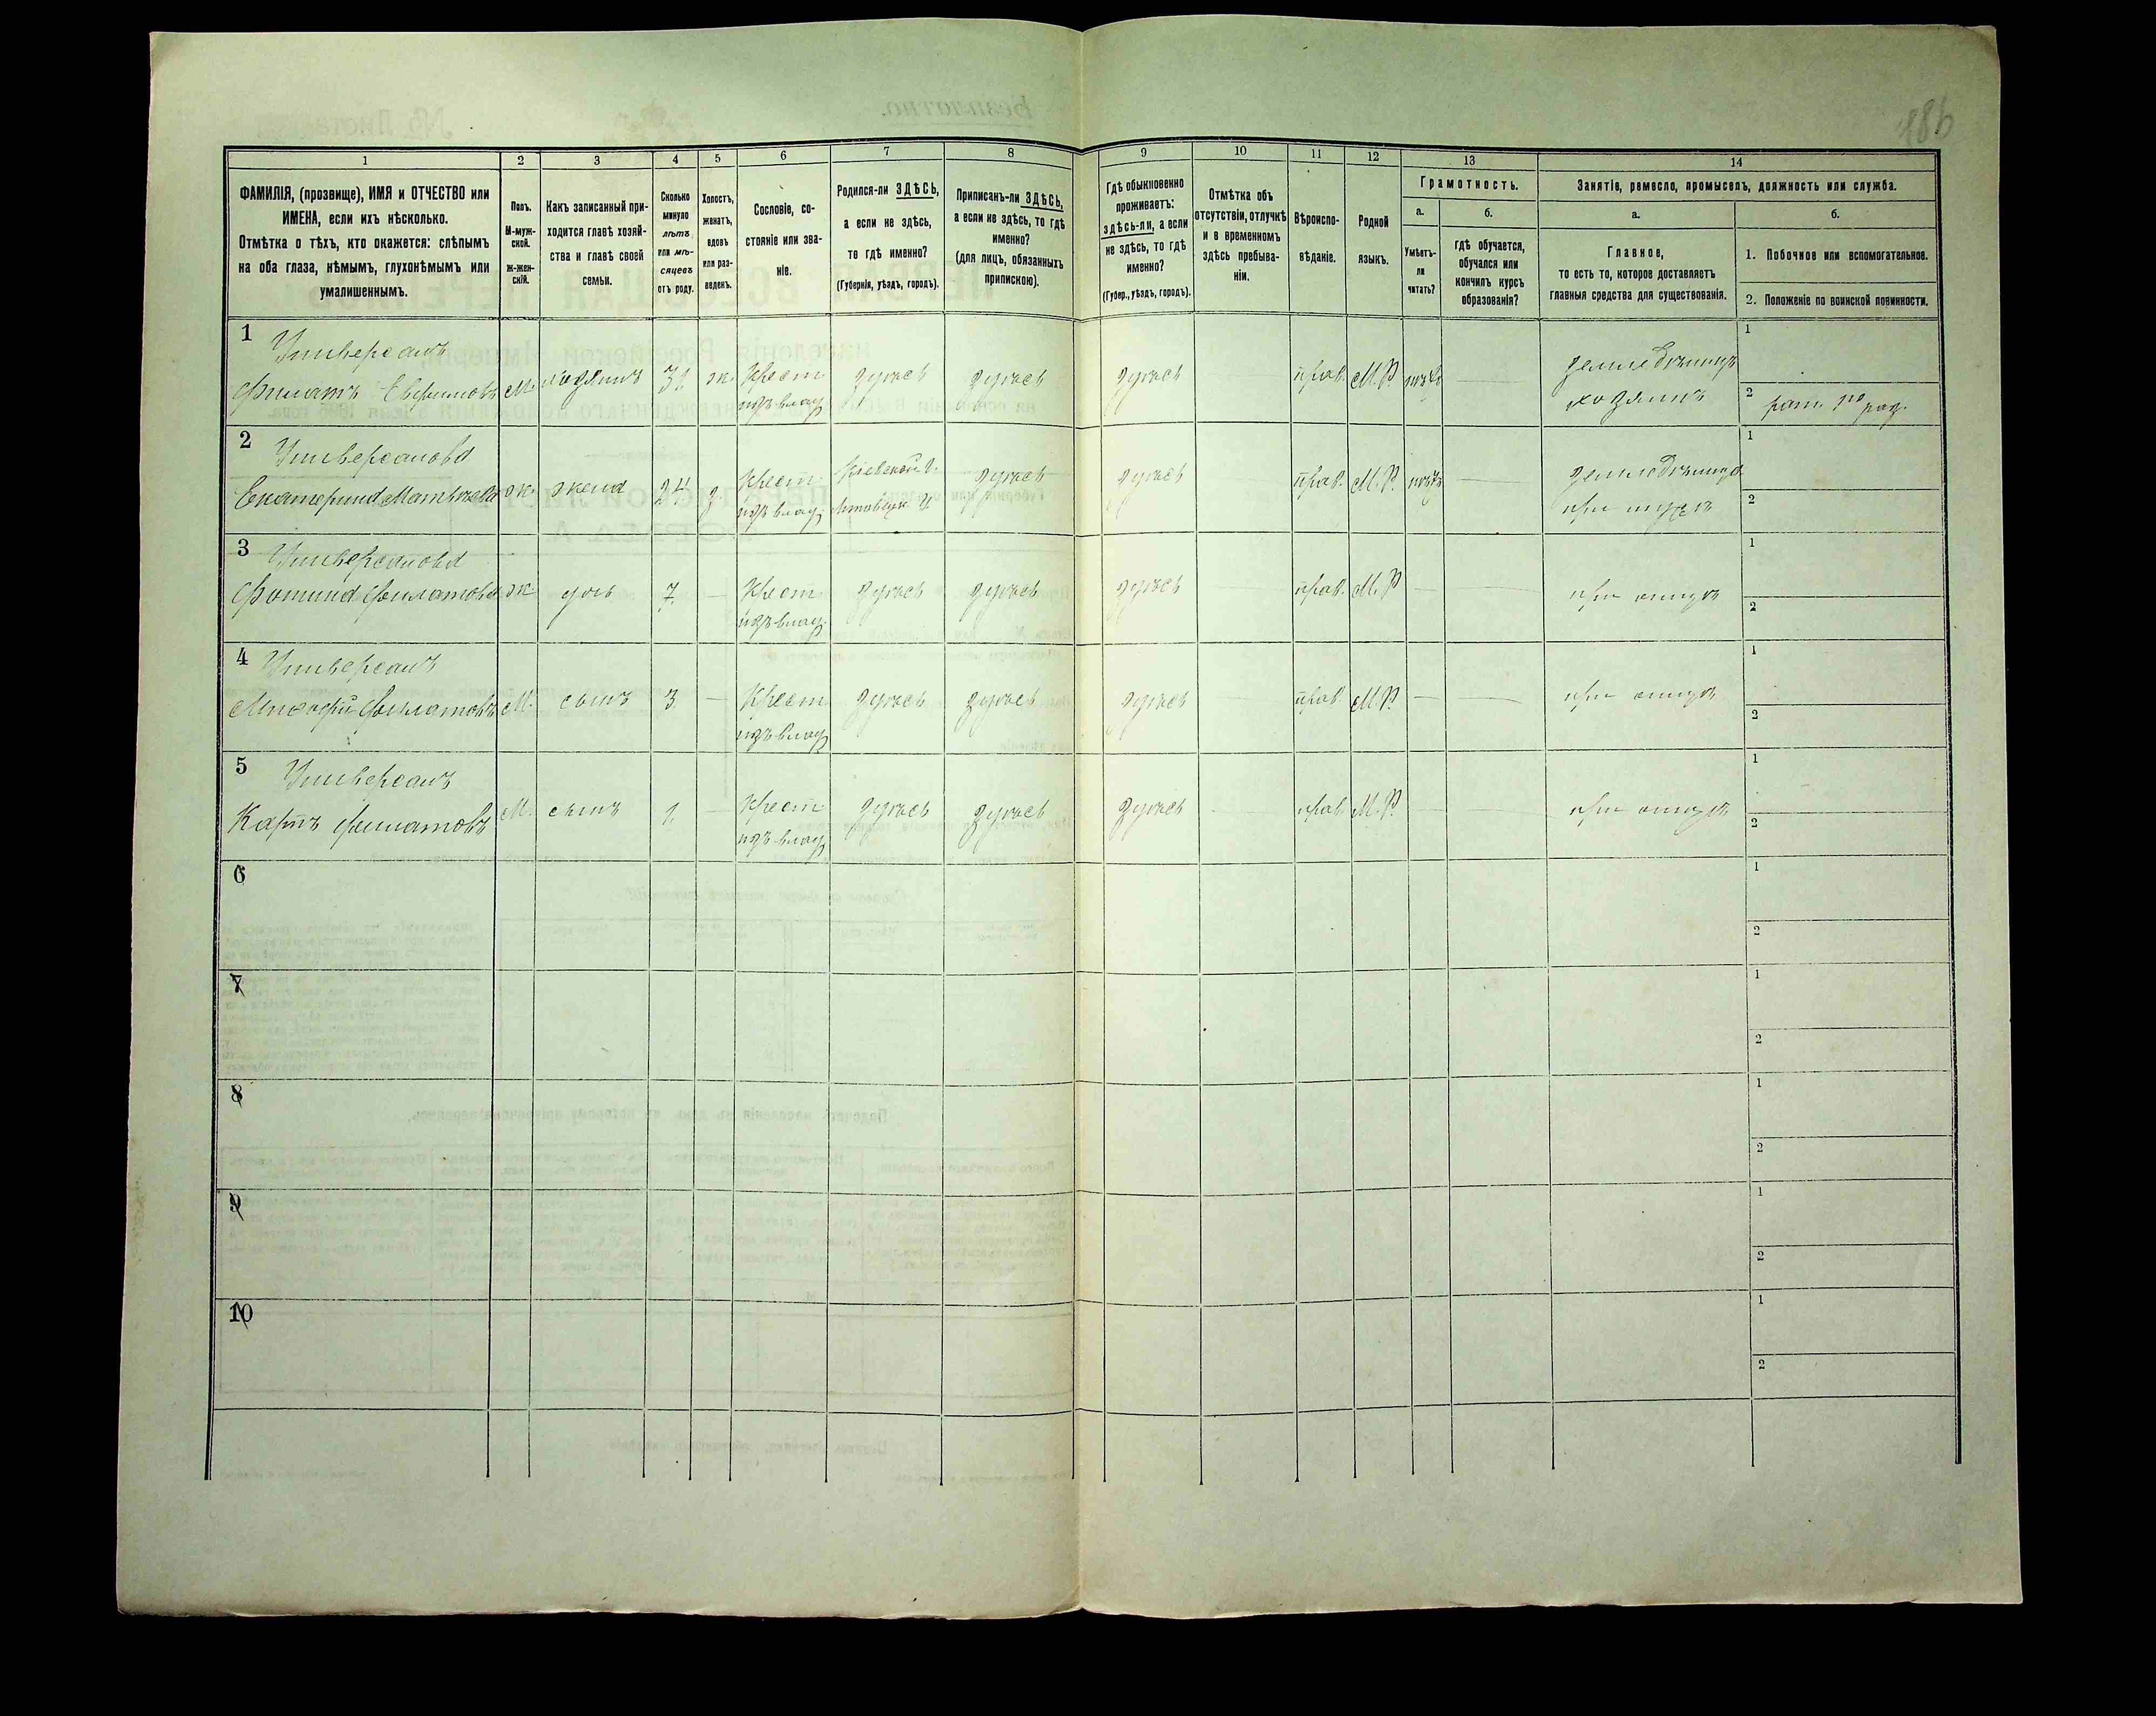 186
1 2 3 4 5 6 7 8 9 10 11 12 13 14
ФАМИЛІЯ, (прозвище), ИМЯ и ОТЧЕСТВО или
ИМЕНА, если ихъ нѣсколько.
Отмѣтка о тѣхъ, кто окажется: слѣпымъ
на оба глаза, нѣмымъ, глухонѣмымъ или
умалишеннымъ.
Полъ.
М-муж-
ской.
ж-жен-
скій.
Какъ записанный при-
ходится главѣ хозяй-
ства и главѣ своей
семьи.
Сколько
минуло
лѣтъ
или мѣ-
сяцевъ
отъ роду.
Холостъ,
женатъ,
вдовъ
или раз-
веденъ.
Сословіе, со-
стояніе или зва-
ніе.
Родился-ли ЗДѢСЬ,
а если не здѣсь,
то гдѣ именно?
(Губернія, уѣздъ, городъ).
Приписанъ-ли ЗДѢСЬ,
а если не здѣсь, то гдѣ
именно?
(для лицъ, обязанныхъ
припискою).
Гдѣ обыкновенно
проживаетъ:
здѣсь-ли, а если
не здѣсь, то гдѣ
именно?
(Губер., уѣздъ, городъ).
Отмѣтка объ
отсутствіи, отлучкѣ
и в временномъ
здѣсь пребыва-
ніи.
Вѣроиспо-
вѣданіе.
Родной
языкъ.
Грамотность.
а.
Умѣетъ-
ли
читать?
б.
гдѣ обучается,
обучался или
кончилъ курсъ
образованія?
Занятіе, ремесло, промыселъ, должность или служба.
а.
Главное,
то есть то, которое доставляетъ
главныя средства для существованія.
б.
1. Побочное или вспомогательное.
2. Положеніе по воинской повинности.
1 Универсалъ 1
Филатъ Евфимовъ М. хозяинъ 31 ж. Крест. здѣсь здѣсь здѣсь — прав. М.Р. нѣтъ — земледѣлецъ
изъ влад. хозяинъ 2 рат. 1го раз.
2 Универсалова 1
Екатерина Матвѣева ж. жена 24 з. Крест. Кіевской г. здѣсь здѣсь — прав. М.Р. нѣтъ — земледѣлица
изъ влад. при мужѣ 2
3 Универсалова 1
Фотина Филатова ж. дочь 7. — Крест. здѣсь здѣсь здѣсь — прав. М.Р. — — при отцѣ
изъ влад. 2
4 Универсалъ 1
Филатовъ М. сынъ 3 — Крест. здѣсь здѣсь здѣсь — прав. М.Р. — — при отцѣ
изъ влад. 2
5 Универсалъ 1
Карпъ Филатовъ М. сынъ 1. — Крест. здѣсь здѣсь здѣсь — прав. М.Р. — — при отцѣ
изъ влад. 2
6 1
2
7 1
2
8 1
2
9 1
2
10 1
2